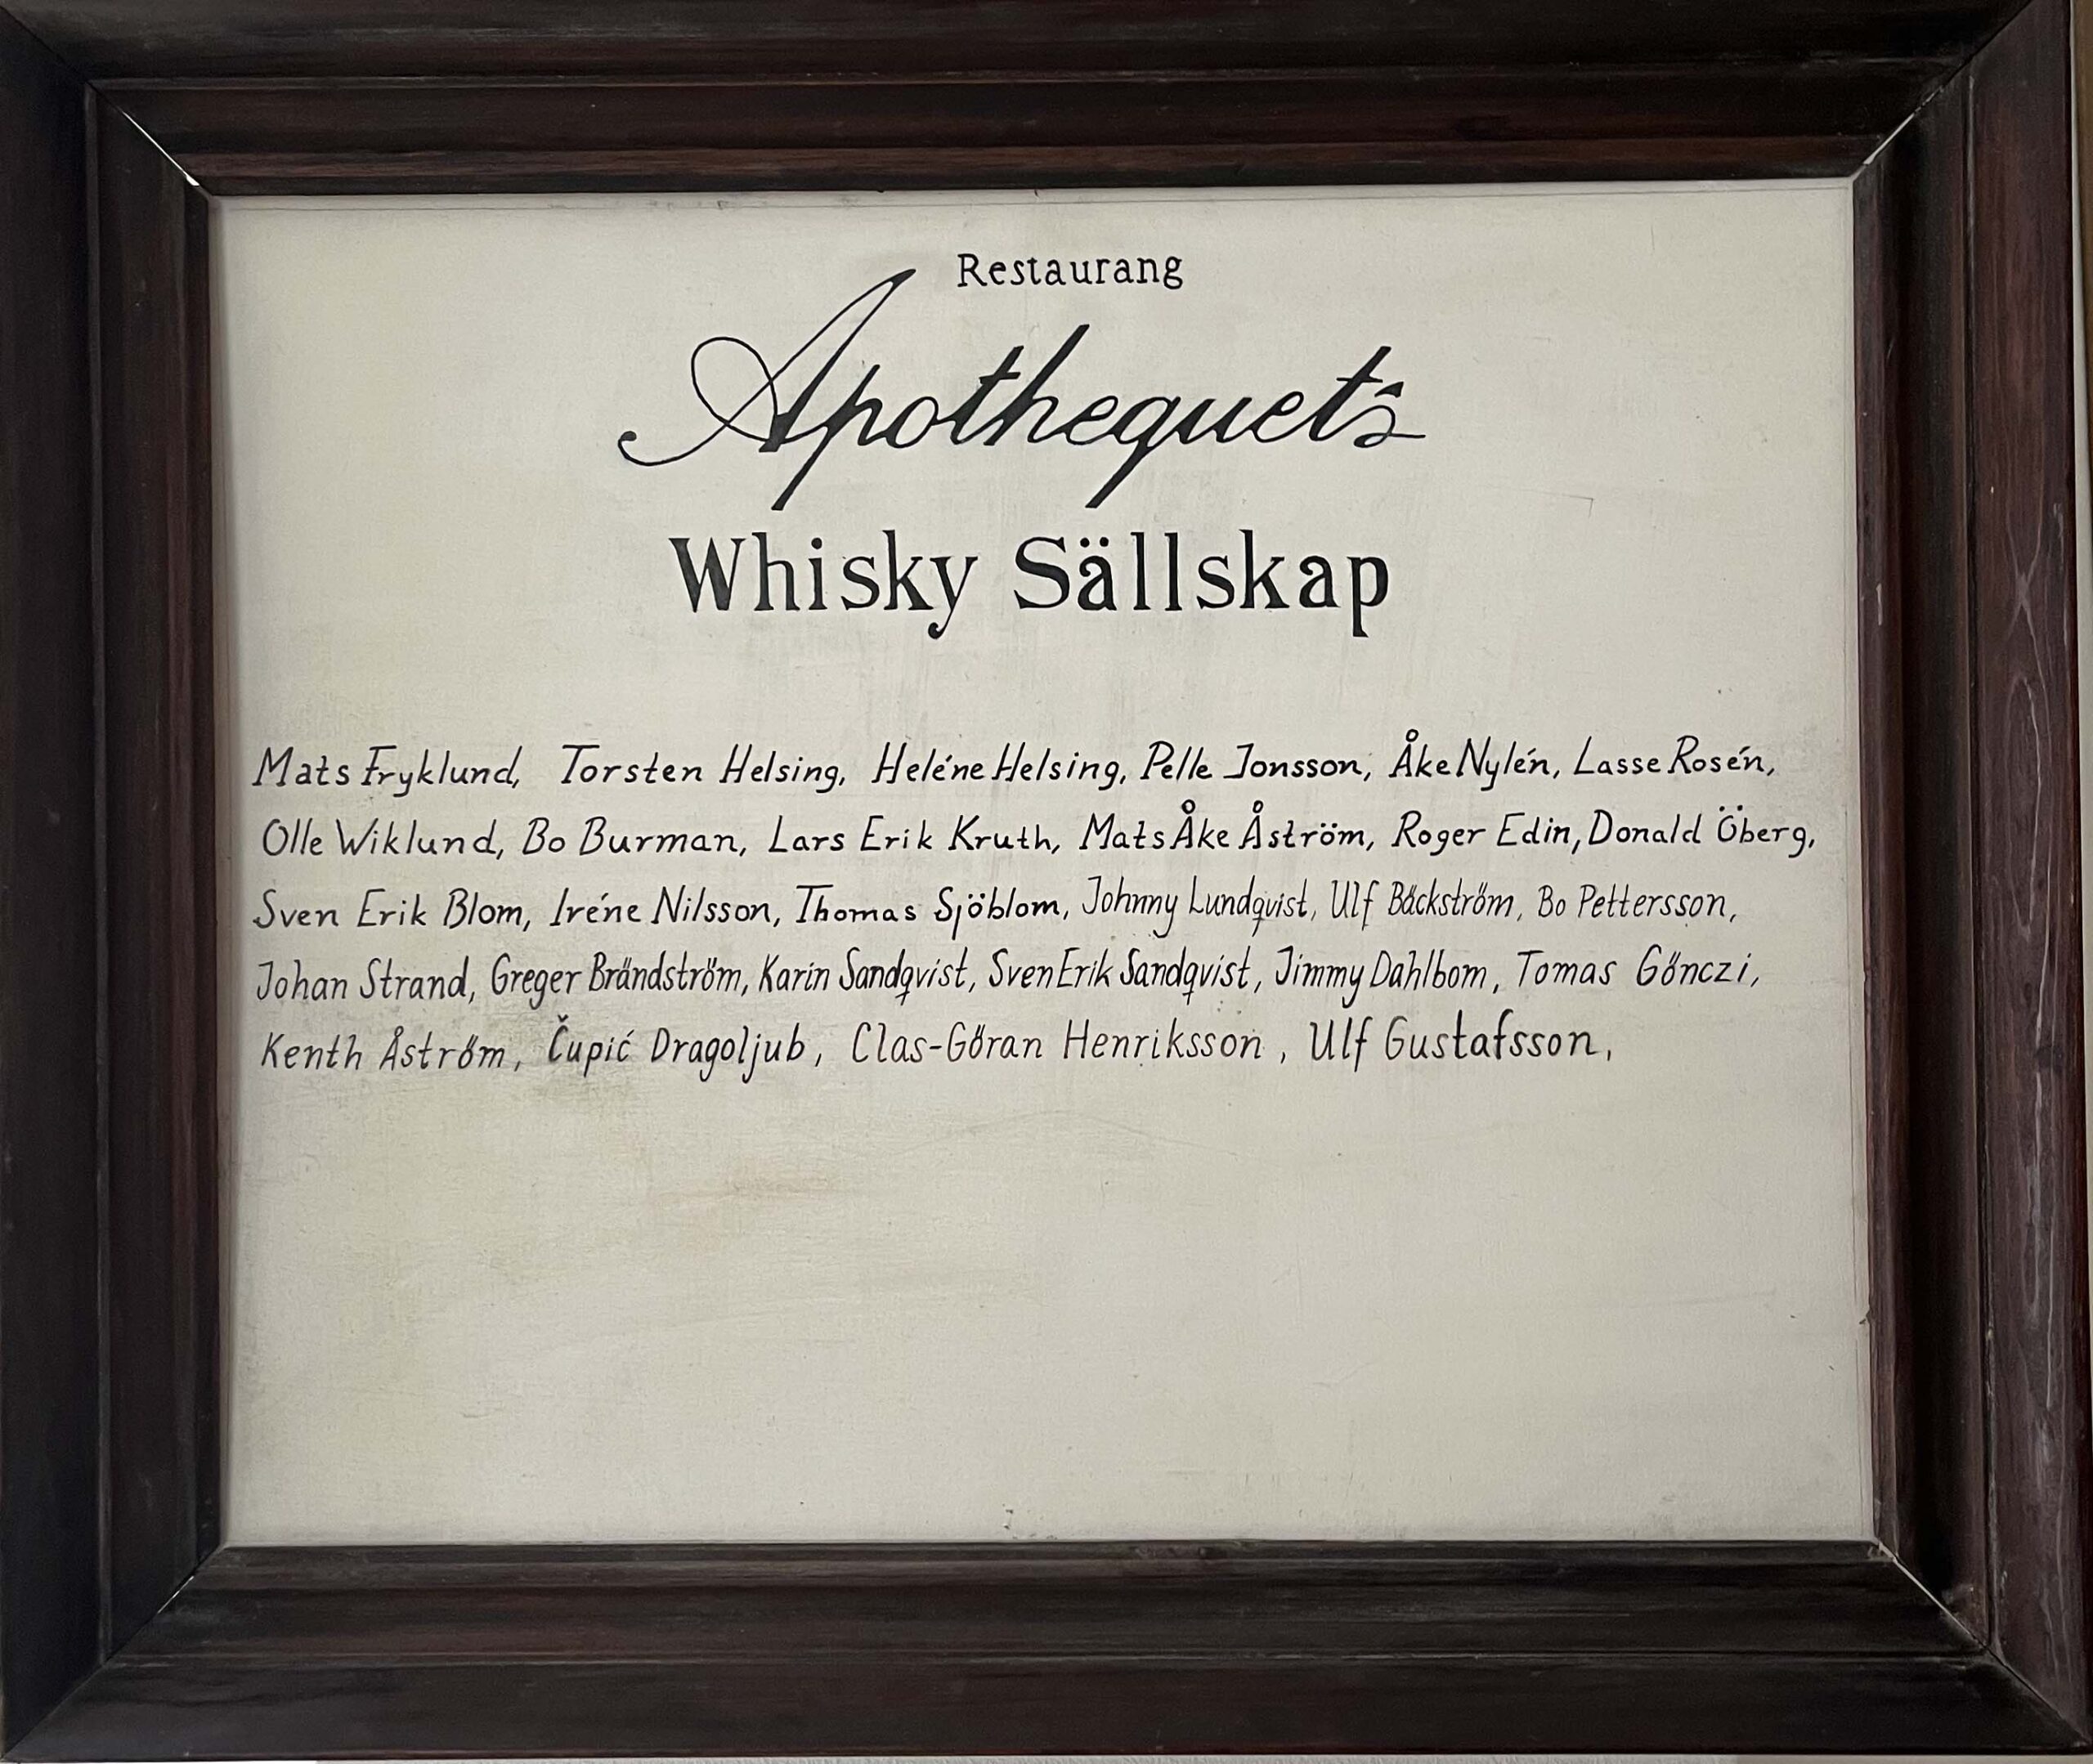 Restaurang
Apothequets
Whisky Sällskap
Mats Fryklund, Torsten Helsing, Heléne Helsing, Pelle Jonsson, Åke Nylén, Lasse Rosén,
Olle Wiklund, Bo Burman, Lars Erik Kruth, Mats Åke Åström, Roger Edin, Donald Öberg,
Sven Erik Blom, Iréne Nilsson, Thomas Sjöblom, Johnny Lundqvist, Ulf Bäckström, Bo Pettersson,
Johan Strand, Greger Brändström, Karin Sandqvist, Sven Erik Sandqvist, Jimmy Dahlbom, Tomas Gönczi,
Kenth Åström, Čupić Dragoljub, Clas-Göran Henriksson, Ulf Gustafsson,